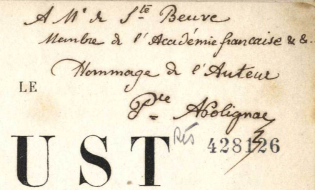 A Mr de Ste Beuve
Membre de l'Académie française & &.
Hommage de l'Auteur
LE
Pce APolignac
Rés 428126
UST